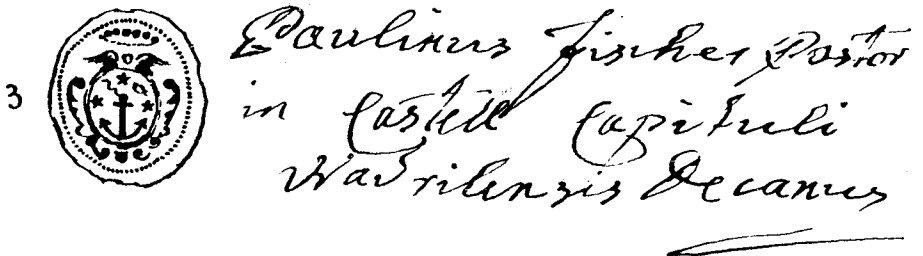 3
Paulinus Fischer Pastor
in Castell Capituli
Wadrilensis Decanus